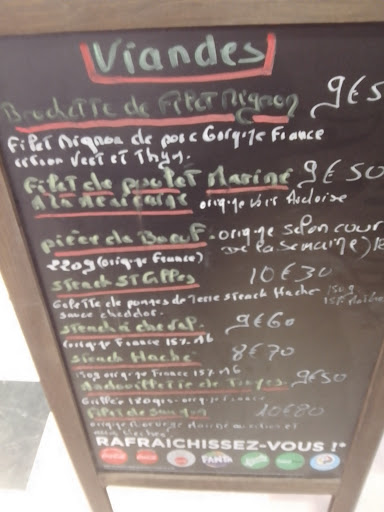 Viandes
Brochette de Filet Mignon 9€5
Filet Mignon de porc Origine France
citron vert et Thym.
Filet de poulet Mariné 9€50
à la Mexicaine origine
pièce de Boeuf. origine selon cour
de la semaine)
220g (origine France)
Steack St Gilles 10€30
Galette de pommes de Terre Steack Haché
sauce cheddar.
Steack à cheval. 9€60
(origine France 15% MG
Steack Haché 8€70
origine France 15% MG
Andouillette de Troyes 9€50
origine France
Filet de 10€80
RAFRAICHISSEZ-VOUS !*
FANTA